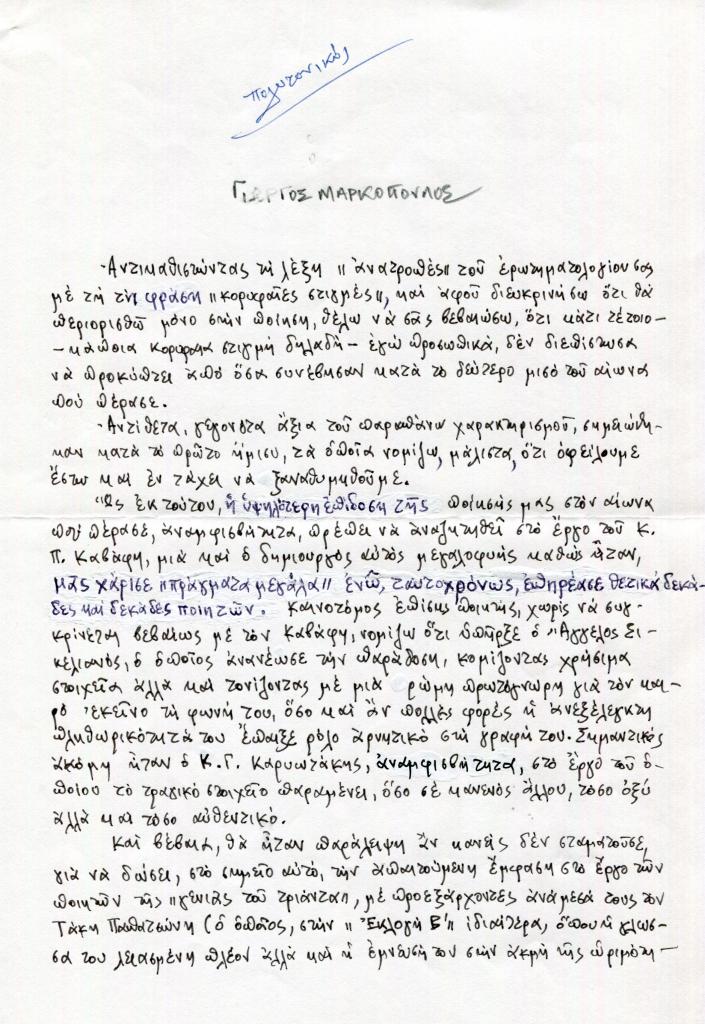 πολυτονικό
ΓΙΩΡΓΟΣ ΜΑΡΚΟΠΟΥΛΟΣ
Ἀντικαθιστώντας τὴ λέξη "ἀνατροπές" τοῦ ἐρωτηματολογίου σας
μὲ τὴ τὴν φράση "κορυφαῖες στιγμές", καὶ ἀφοῦ διευκρινήσω ὅτι θὰ
περιορισθῶ μόνο στὴν ποίηση, θέλω νὰ σᾶς βεβαιώσω, ὅτι κάτι τέτοιο -
- κάποια κορυφαία στιγμὴ δηλαδὴ - ἐγὼ προσωπικά, δὲν διεπίστωσα
νὰ προκύπτει ἀπὸ ὅσα συνέβησαν κατὰ τὸ δεύτερο μισὸ τοῦ αἰώνα
ποὺ πέρασε.
Ἀντίθετα, γεγονότα ἄξια τοῦ παραπάνω χαρακτηρισμοῦ, σημειώθη-
καν κατὰ τὸ πρῶτο ἥμισυ, τὰ ὁποῖα νομίζω, μάλιστα, ὅτι ὀφείλουμε
ἔστω καὶ ἐν τάχει νὰ ξαναθυμηθοῦμε.
Ὡς ἐκ τούτου, ἡ ὑψηλότερη ἐπίδοση τῆς ποίησής μας στὸν αἰώνα
ποὺ πέρασε, ἀναμφισβήτητα, πρέπει νὰ ἀναζητηθεῖ στὸ ἔργο τοῦ Κ.
Π. Καβάφη, μιὰ καὶ ὁ δημιουργὸς αὐτὸς μεγαλοφυὴς καθὼς ἦταν,
μᾶς χάρισε "πράγματα μεγάλα" ἐνῶ, ταυτοχρόνως, ἐπηρέασε θετικὰ δεκά-
δες καὶ δεκάδες ποιητῶν. Καινοτόμος ἐπίσης ποιητής, χωρὶς νὰ συγ-
κρίνεται βεβαίως μὲ τὸν Καβάφη, νομίζω ὅτι ὑπῆρξε ὁ Ἄγγελος Σι-
κελιανός, ὁ ὁποῖος ἀνανέωσε τὴν παράδοση, κομίζοντας χρήσιμα
στοιχεῖα ἀλλὰ καὶ τονίζοντας μὲ μιὰ ρώμη πρωτόγνωρη γιὰ τὸν και-
ρὸ ἐκεῖνο τὴ φωνή του, ὅσο καὶ ἂν πολλὲς φορὲς ἡ ἀνεξέλεγκτη
πληθωρικότητά του ἔπαιξε ρόλο ἀρνητικὸ στὴ γραφή του. Σημαντικὸς
ἀκόμη ἦταν ὁ Κ.Γ. Καρυωτάκης, ἀναμφισβήτητα, στὸ ἔργο τοῦ ὁ-
ποίου τὸ τραγικὸ στοιχεῖο παραμένει, ὅσο σὲ κανενὸς ἄλλου, τόσο ὀξὺ
ἀλλὰ καὶ τόσο αὐθεντικό.
Καὶ βέβαια, θὰ ἦταν παράλειψη ἂν κανεὶς δὲν σταματοῦσε,
γιὰ νὰ δώσει, στὸ σημεῖο αὐτό, τὴν ἀπαιτούμενη ἔμφαση στὸ ἔργο τῶν
ποιητῶν τῆς "γενιᾶς τοῦ τριάντα", μὲ προεξάρχοντες ἀνάμεσά τους τὸν
Τάκη Παπατσώνη (ὁ ὁποῖος, στὴν "Ἐκλογὴ Β'" ἰδιαίτερα, ὅπου ἡ γλώσ-
σα του λειασμένη πλέον ἀλλὰ καὶ ἡ ἔμνευσή του στὴν ἀκμὴ τῆς ὡριμότη-